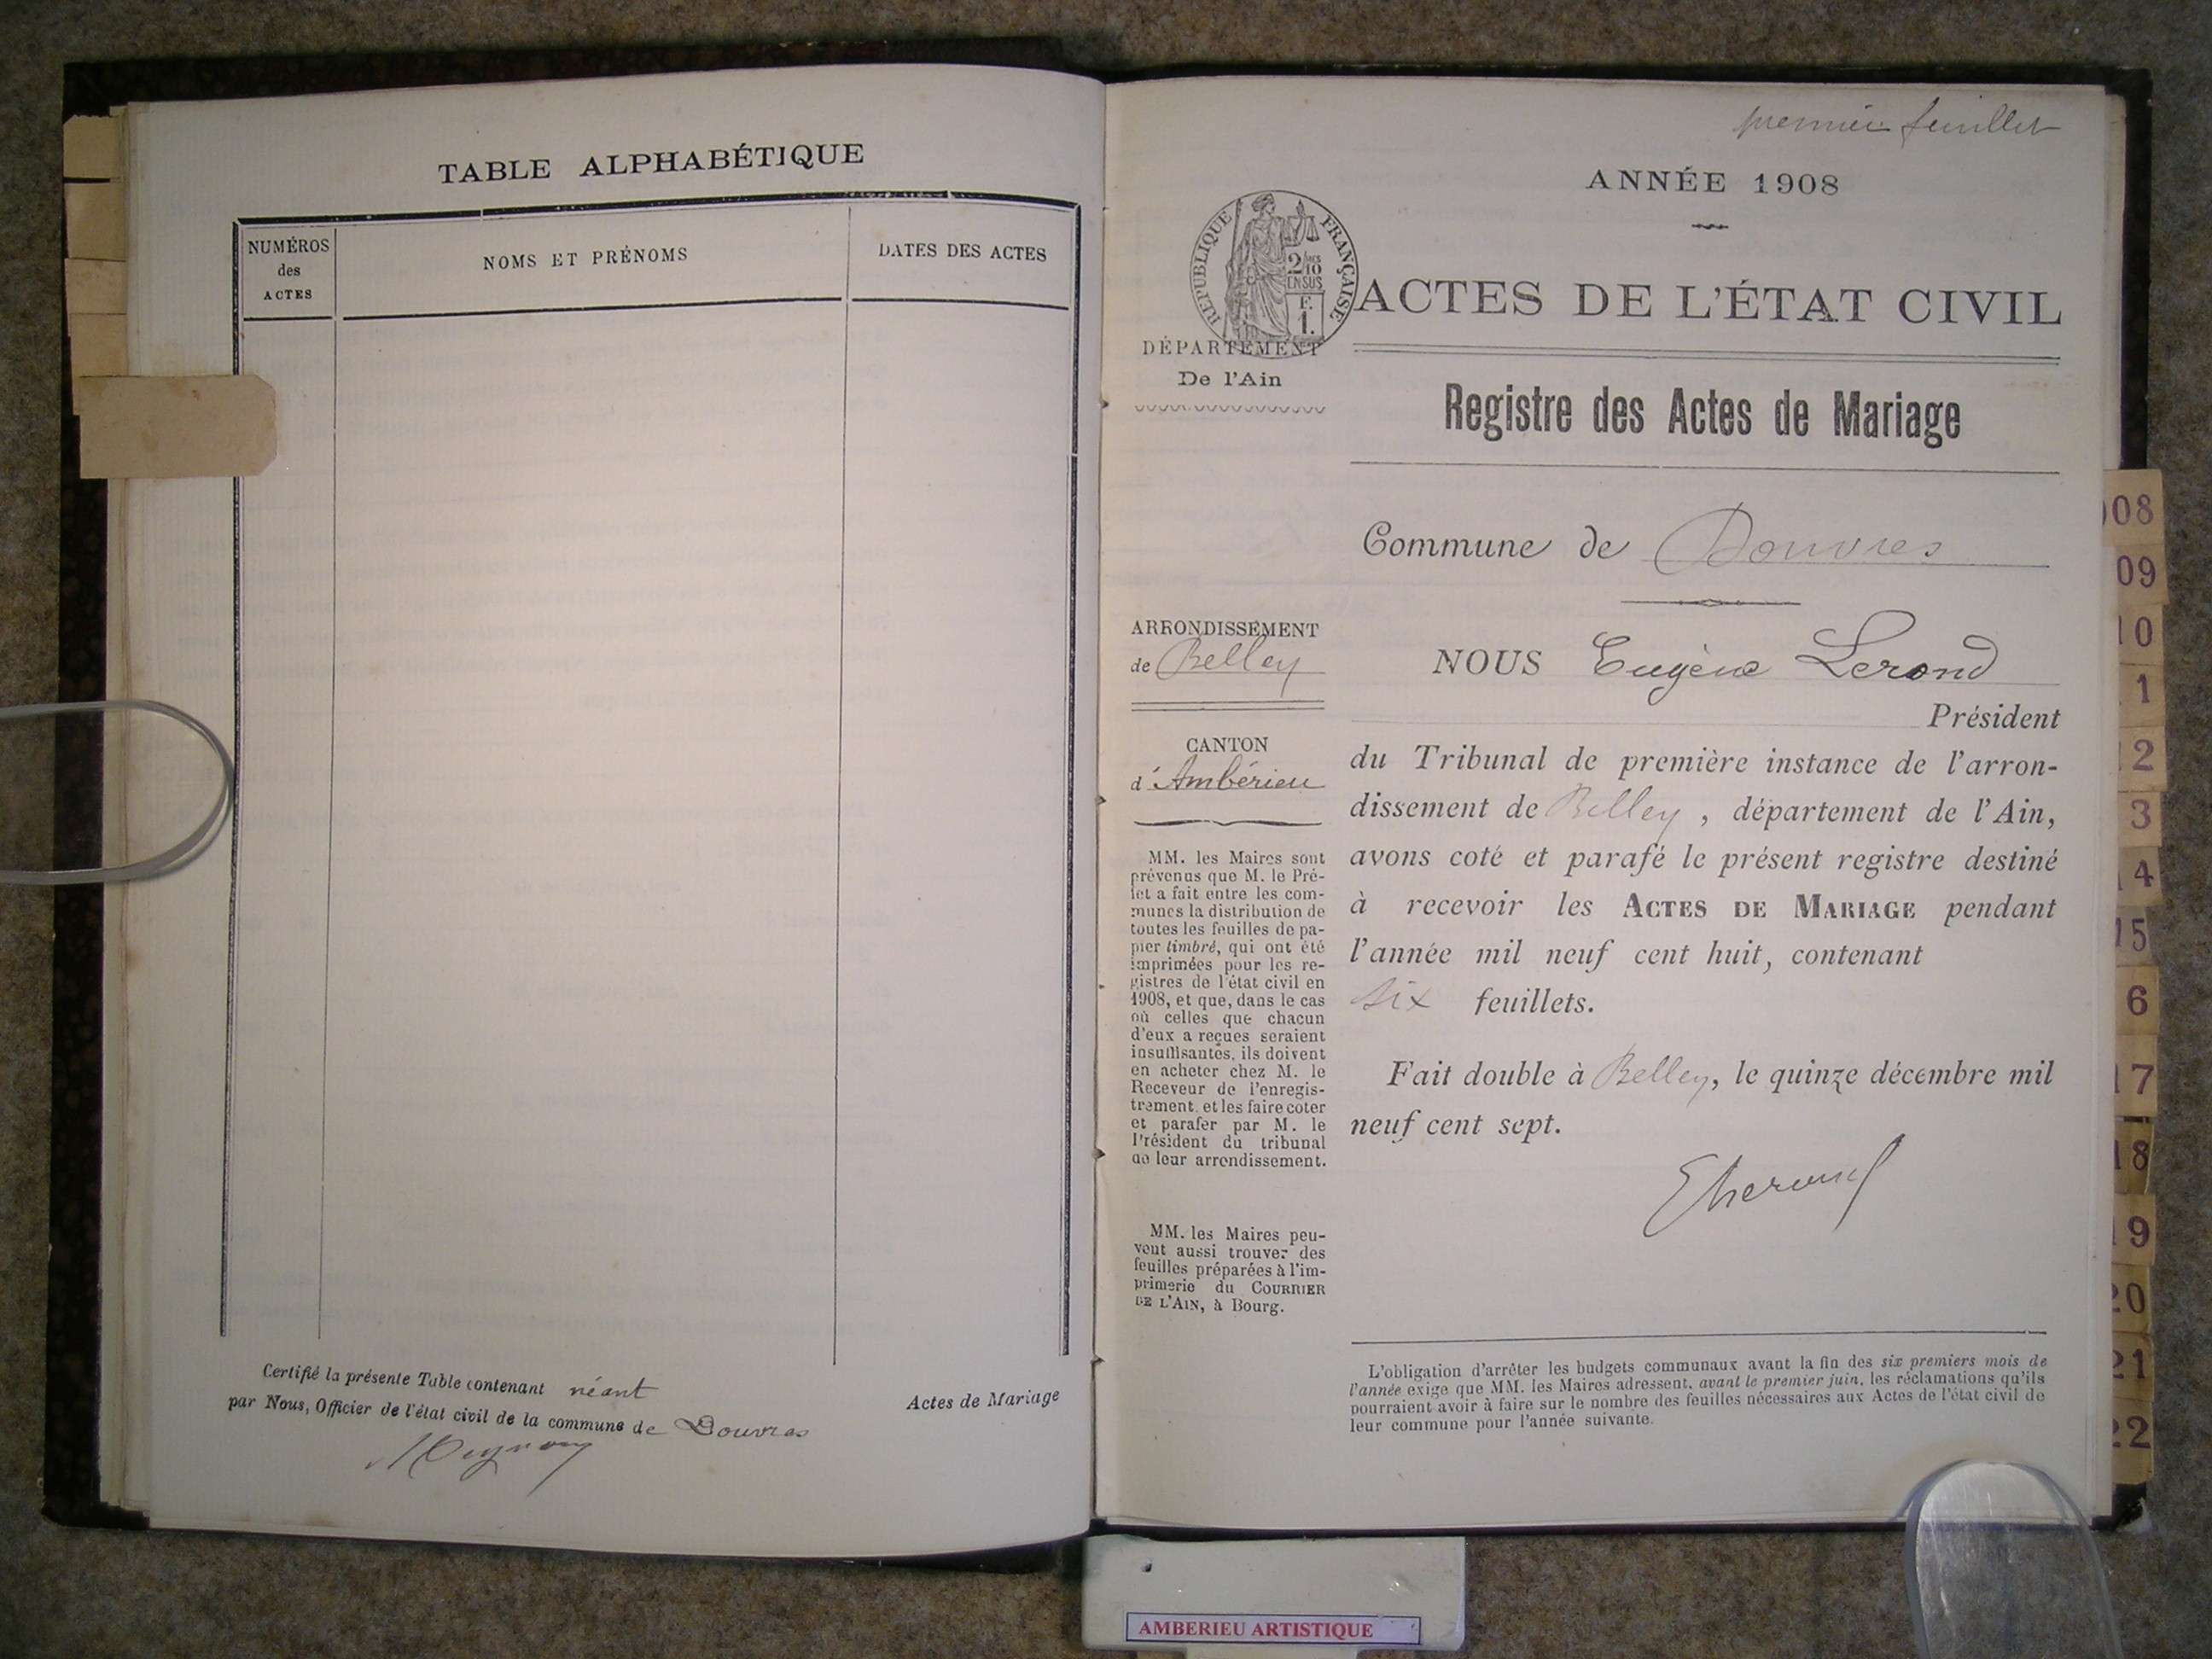 TABLE ALPHABÉTIQUE
NUMÉROS
des
ACTES
NOMS ET PRÉNOMS
DATES DES ACTES
Certifié la présente Table contenant néant
Actes de Mariage
par Nous, Officier de l'état civil de la commune de Douvres
premier feuillet
ANNÉE 1908
RÉPUBLIQUE FRANÇAISE
2/10
EN SUS
F.
1.
ACTES DE L'ÉTAT CIVIL
DÉPARTEMENT
De l'Ain
Registre des Actes de Mariage
Commune de Douvres
ARRONDISSEMENT
de Belley
CANTON
d'Ambérieu
MM. les Maires sont
prévenus que M. le Pré-
fet a fait entre les com-
munes la distribution de
toutes les feuilles de pa-
pier timbré, qui ont été
imprimées pour les re-
gistres de l'état civil en
1908, et que, dans le cas
où celles que chacun
d'eux a reçues seraient
insuffisantes, ils doivent
en acheter chez M. le
Receveur de l'enregis-
trement, et les faire coter
et parafer par M. le
Président du tribunal
de leur arrondissement.
MM. les Maires peu-
vent aussi trouver des
feuilles préparées à l'im-
primerie du COURRIER
DE L'AIN, à Bourg.
NOUS Eugène Lerond
Président
du Tribunal de première instance de l'arron-
dissement de Belley, département de l'Ain,
avons coté et parafé le présent registre destiné
à recevoir les ACTES DE MARIAGE pendant
l'année mil neuf cent huit, contenant
six feuillets.
Fait double à Belley, le quinze décembre mil
neuf cent sept.
L'obligation d'arrêter les budgets communaux avant la fin des six premiers mois de
l'année exige que MM. les Maires adressent, avant le premier juin, les réclamations qu'ils
pourraient avoir à faire sur le nombre des feuilles nécessaires aux Actes de l'état civil de
leur commune pour l'année suivante.
08
09
10
1
2
3
14
15
6
17
18
19
20
21
22
AMBERIEU ARTISTIQUE